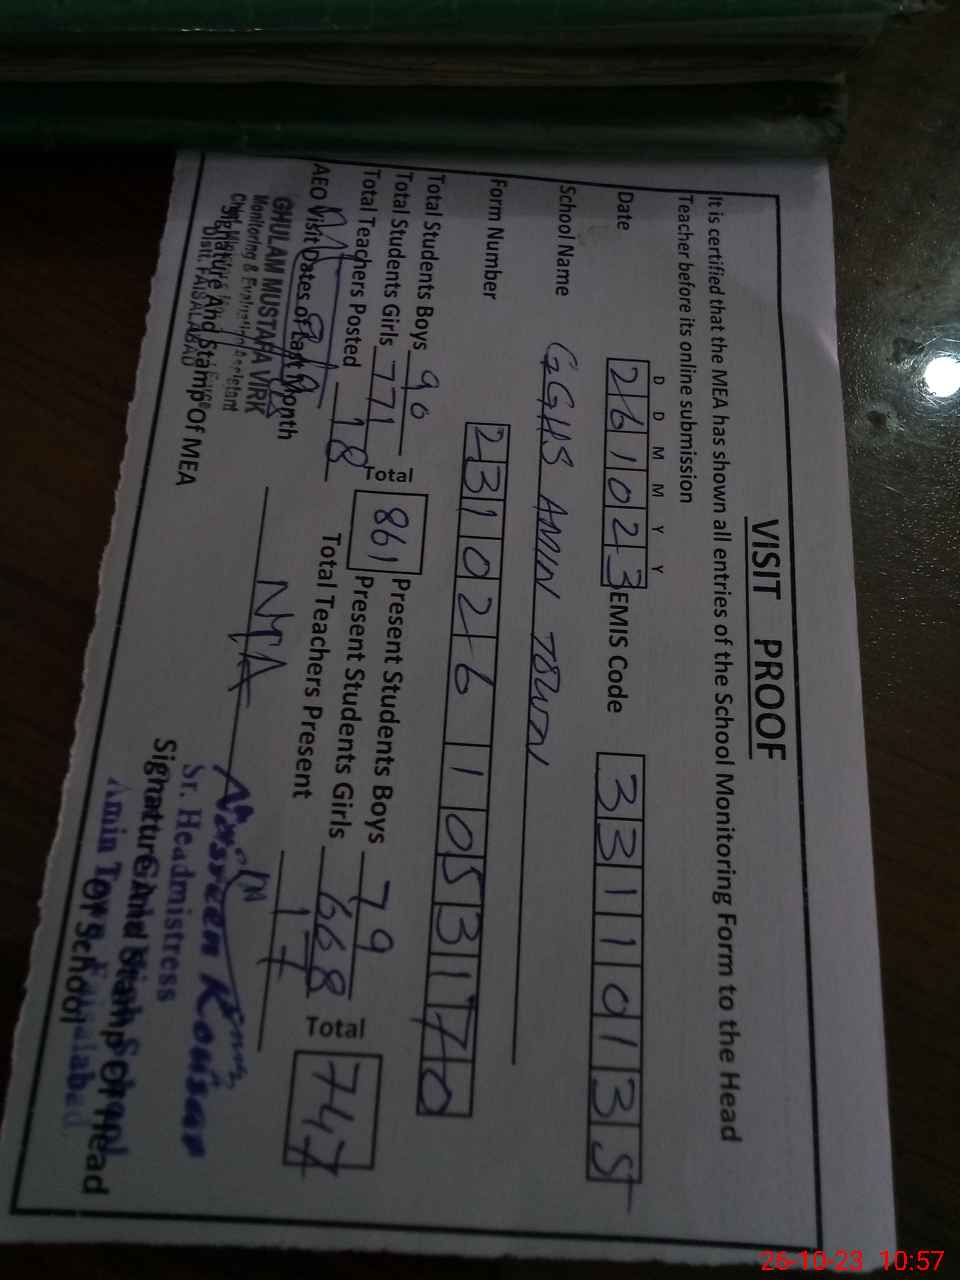 VISIT PROOF
It is certified that the MEA has shown all entries of the School Monitoring Form to the Head
Teacher before its online submission
D D M M Y Y
Date 261023 EMIS Code 33110135
School Name GGHS AMIN TOWN
Form Number 23102611053170
Total Students Boys 90 Present Students Boys 79
Total Students Girls 771 Total 861 Present Students Girls 668 Total 747
Total Teachers Posted 18 Total Teachers Present 17
AEO Visit Dates of Last Month NA
GHULAM MUSTAFA VIRK
Monitoring & Evaluation Assistant
Signature And Stamp Of MEA
Distt. FAISALABAD
Nasreen Kousar
Sr. Headmistress
Signature And Stamp Of Head
Of School
Amin Town Faisalabad
26-10-23 10:57